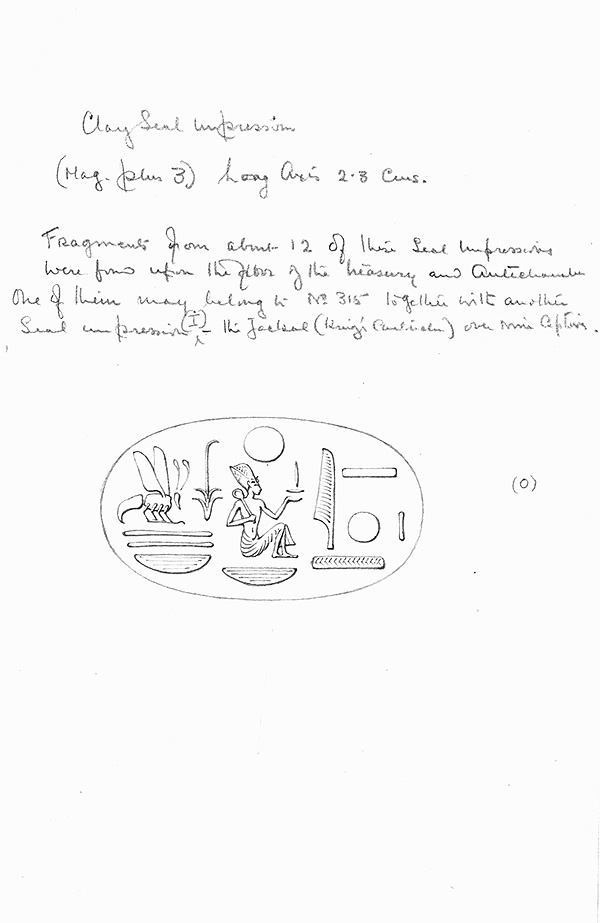 Clay Seal Impression
(Mag. plus 3.) Long Axis 2.3 Cms.
Fragments from about 12 of these Seal Impressions
were found upon the floor of the Treasury and Antechamber
One of them may belong to No 315 together with another
Seal impression (I) – the Jackal (King's Cartouche) over nine Captives.
(O)